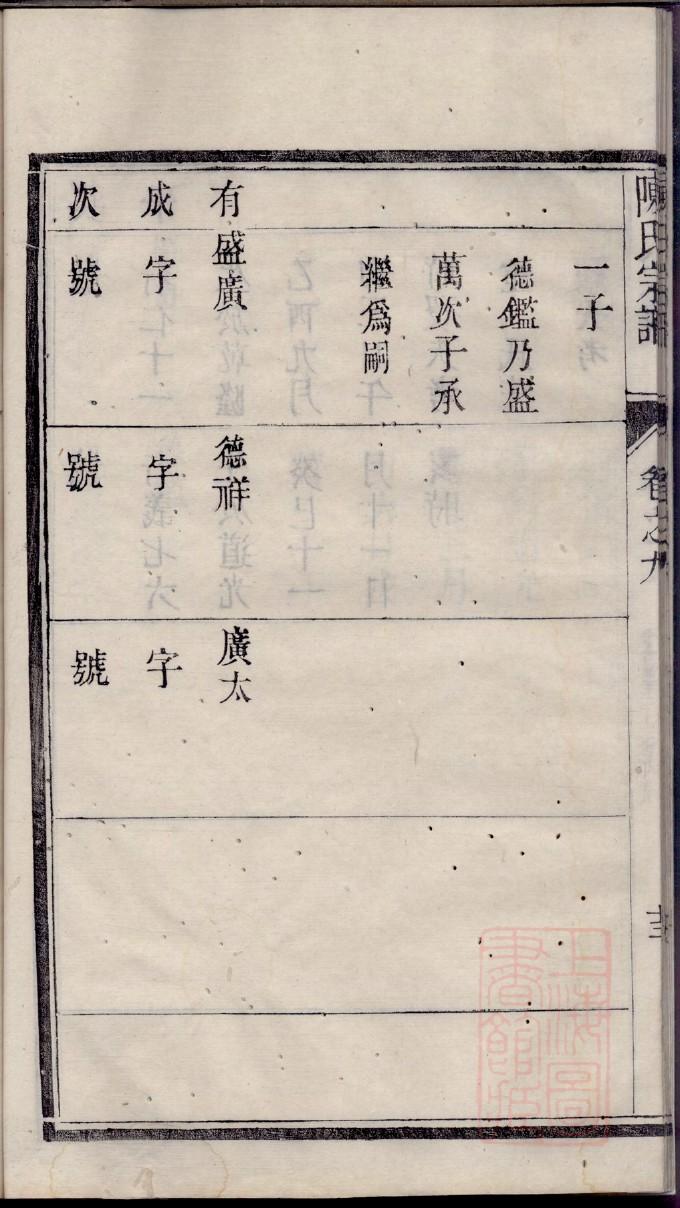 陳氏宗譜
卷之九
一子
德鑑乃盛
萬次子承
繼爲嗣
有成次
盛廣
字
號
德祥
字
號
廣太
字
號
上海圖書館藏